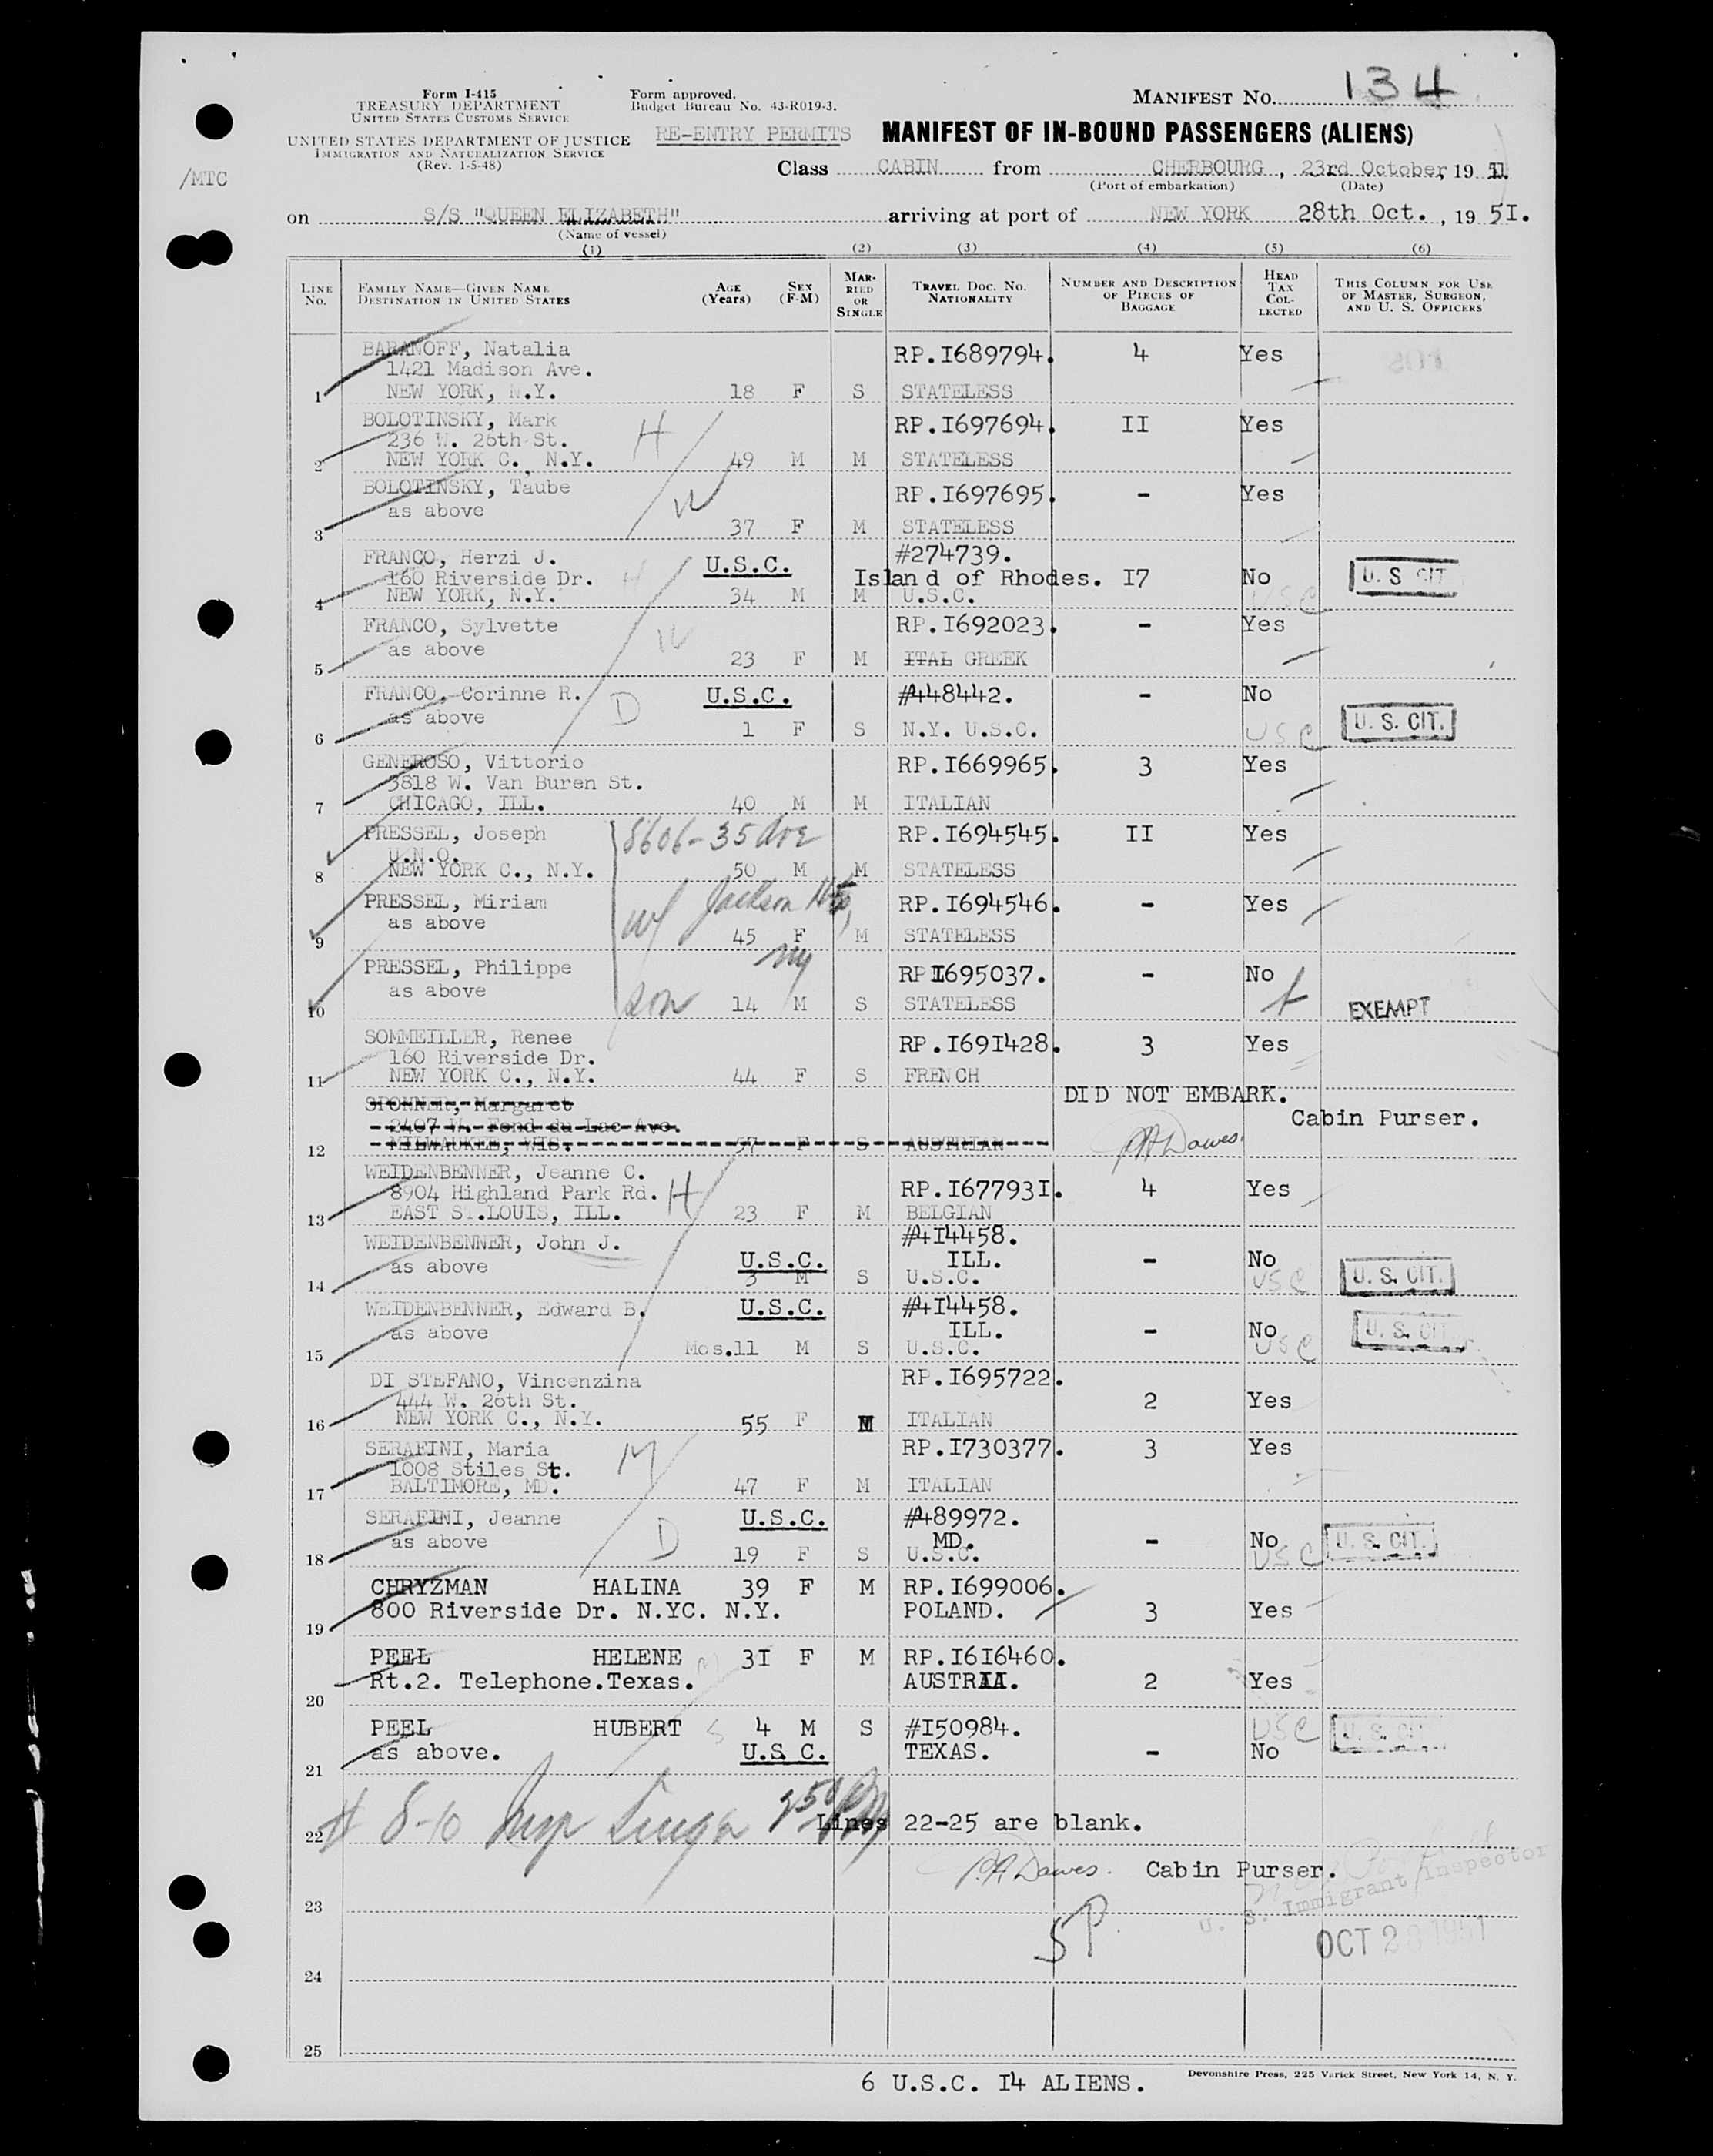 Form I-415
TREASURY DEPARTMENT
UNITED STATES CUSTOMS SERVICE
UNITED STATES DEPARTMENT OF JUSTICE
IMMIGRATION AND NATURALIZATION SERVICE
(Rev. 1-5-48)
Form approved.
Budget Bureau No. 43-R019-3.
RE-ENTRY PERMITS
/MTC
MANIFEST No. 134
MANIFEST OF IN-BOUND PASSENGERS (ALIENS)
Class CABIN from CHERBOURG, 23rd October, 1951.
(Port of embarkation) (Date)
on S/S "QUEEN ELIZABETH" arriving at port of NEW YORK 28th Oct., 195I.
(Name of vessel)
(1) (2) (3) (4) (5) (6)
LINE No. FAMILY NAME—GIVEN NAME DESTINATION IN UNITED STATES AGE (Years) SEX (F-M) MARRIED OR SINGLE TRAVEL DOC. NO. NATIONALITY NUMBER AND DESCRIPTION OF PIECES OF BAGGAGE HEAD TAX COLLECTED THIS COLUMN FOR USE OF MASTER, SURGEON, AND U. S. OFFICERS
BARANOFF, Natalia RP.I689794. 4 Yes
1421 Madison Ave.
1 NEW YORK, N.Y. 18 F S STATELESS
BOLOTINSKY, Mark H RP.I697694. II Yes
236 W. 26th St.
2 NEW YORK C., N.Y. 49 M M STATELESS
BOLOTINSKY, Taube W RP.I697695. - Yes
as above
3 37 F M STATELESS
FRANCO, Herzi J. U.S.C. #274739.
160 Riverside Dr. H Island of Rhodes. I7 No U. S CIT
4 NEW YORK, N.Y. 34 M M U.S.C. USC
FRANCO, Sylvette W RP.I692023. - Yes
as above
5 23 F M ITAL GREEK
FRANCO, Corinne R. D U.S.C. #448442. - No
as above U. S. CIT.
6 1 F S N.Y. U.S.C. USC
GENEROSO, Vittorio RP.I669965. 3 Yes
3818 W. Van Buren St.
7 CHICAGO, ILL. 40 M M ITALIAN
PRESSEL, Joseph 8606-35 Ave RP.I694545. II Yes
U.N.O.
8 NEW YORK C., N.Y. 50 M M STATELESS
PRESSEL, Miriam wf Jackson Hts, RP.I694546. - Yes
as above
9 45 F M STATELESS
NY
PRESSEL, Philippe RPI695037. - No
as above son
10 14 M S STATELESS EXEMPT
SOMMEILLER, Renee RP.I69I428. 3 Yes
160 Riverside Dr.
11 NEW YORK C., N.Y. 44 F S FRENCH
SPONNER, Margaret DID NOT EMBARK.
2407 W. Fond du Lac Ave. Cabin Purser.
12 MILWAUKEE, WIS. 57 F S AUSTRIAN Dawes.
WEIDENBENNER, Jeanne C.
8904 Highland Park Rd. H RP.I67793I. 4 Yes
13 EAST ST.LOUIS, ILL. 23 F M BELGIAN
WEIDENBENNER, John J. #4I4458.
as above U.S.C. ILL. - No
14 3 M S U.S.C. USC U. S. CIT.
WEIDENBENNER, Edward B. U.S.C. #4I4458.
as above ILL. - No U. S. CIT
15 Mos.11 M S U.S.C. USC
DI STEFANO, Vincenzina RP.I695722.
444 W. 26th St. 2 Yes
16 NEW YORK C., N.Y. 55 F M ITALIAN
SERAFINI, Maria M RP.I730377. 3 Yes
1008 Stiles St.
17 BALTIMORE, MD. 47 F M ITALIAN
SERAFINI, Jeanne U.S.C. #489972.
as above D MD. - No U. S. CIT.
18 19 F S U.S.C. USC
CHRYZMAN HALINA 39 F M RP.I699006.
800 Riverside Dr. N.YC. N.Y. POLAND. 3 Yes
19
PEEL HELENE M 3I F M RP.I6I6460.
Rt.2. Telephone.Texas. AUSTRIA. 2 Yes
20
PEEL HUBERT S 4 M S #I50984. USC U. S. CIT
as above. U.S C. TEXAS. - No
21
22 # 8-10 Lines 22-25 are blank.
Dawes. Cabin Purser.
U. S. Immigrant Inspector
23 SP.
OCT 28 1951
24
25
6 U.S.C. I4 ALIENS.
Devonshire Press, 225 Varick Street, New York 14, N. Y.